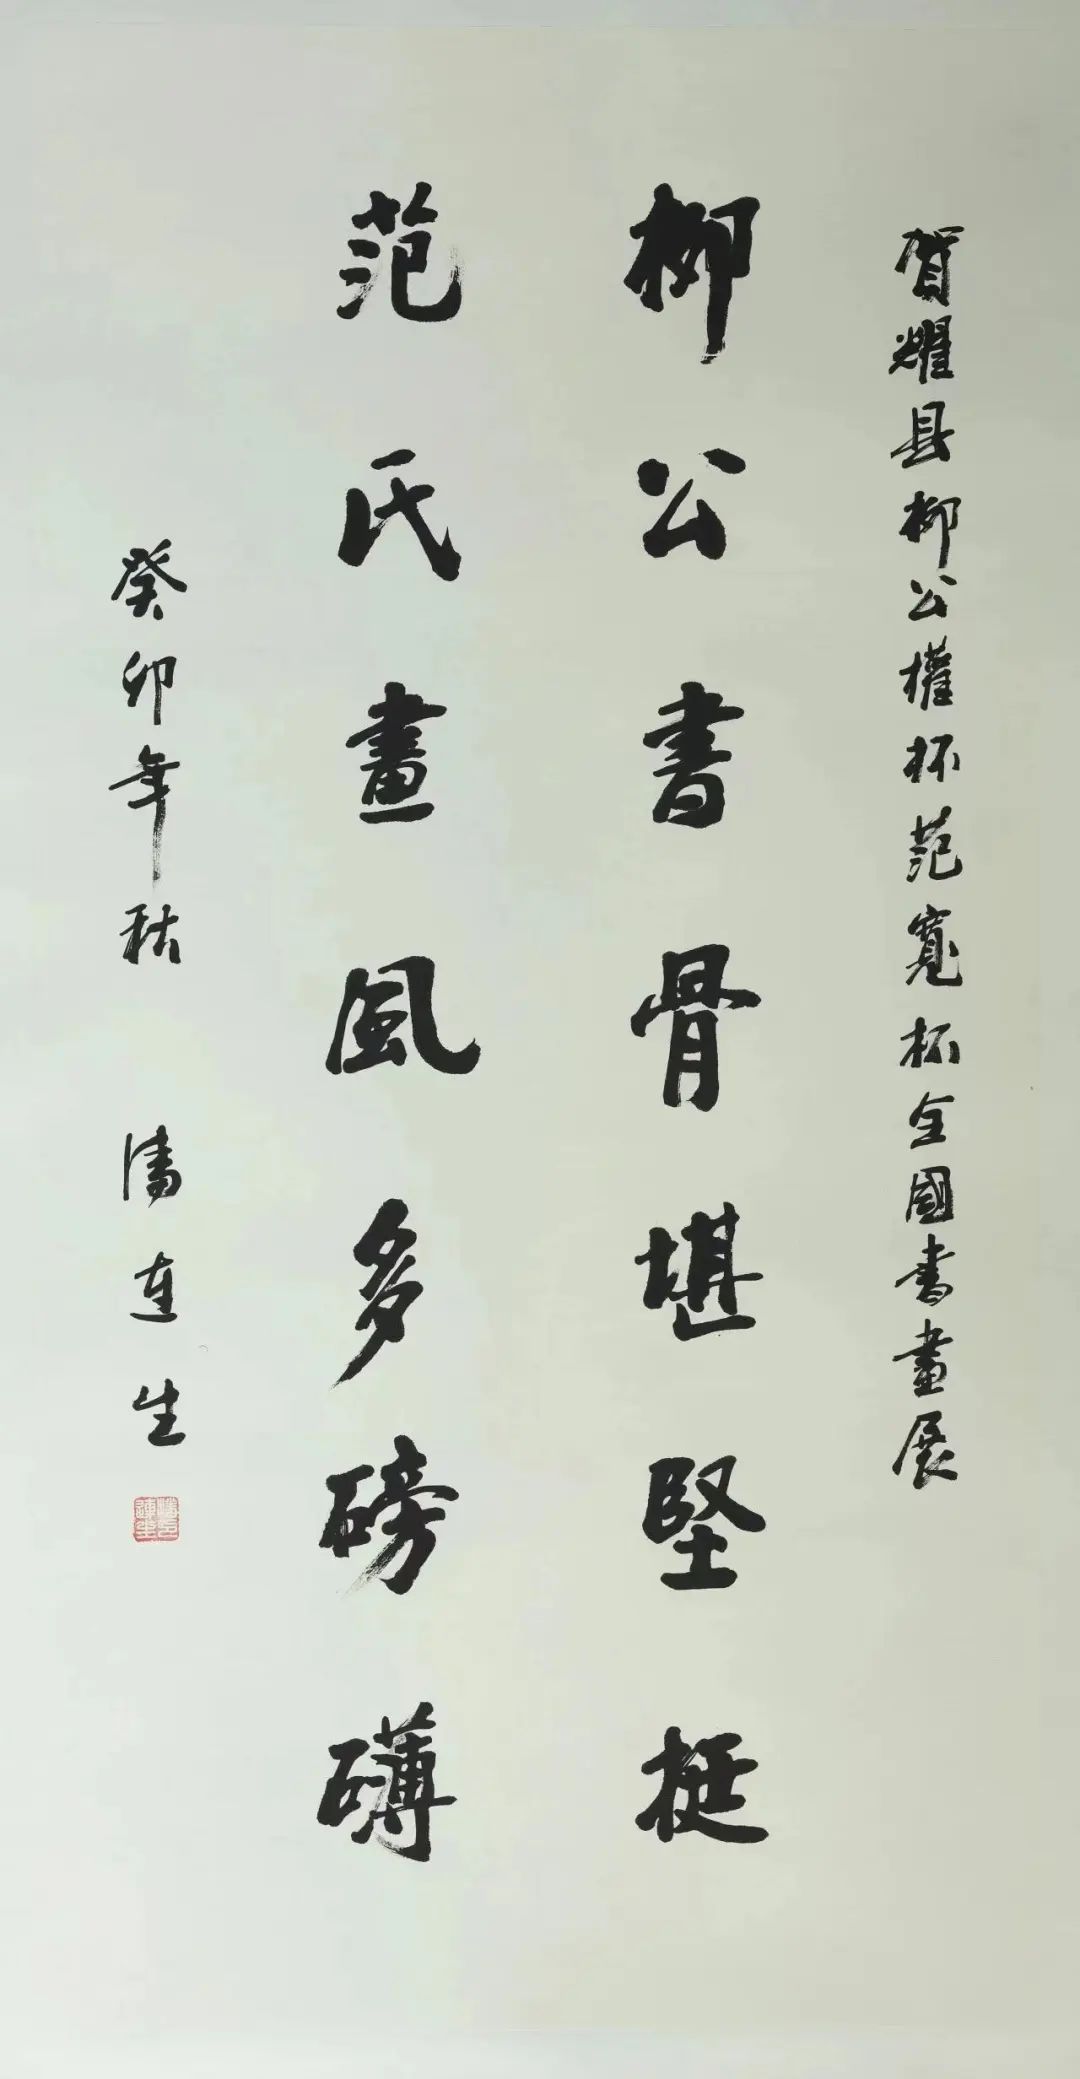 贺耀县柳公權杯范寬杯全國書畫展
柳公書骨堪堅挺
范氏畫風多磅礴
癸卯年秋 潘連生
潘連生印